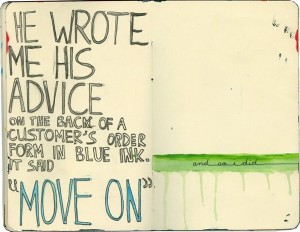 HE WROTE
ME HIS
ADVICE
ON THE BACK OF A
CUSTOMER'S ORDER
FORM IN BLUE INK.
IT SAID
"MOVE ON".
and so i did